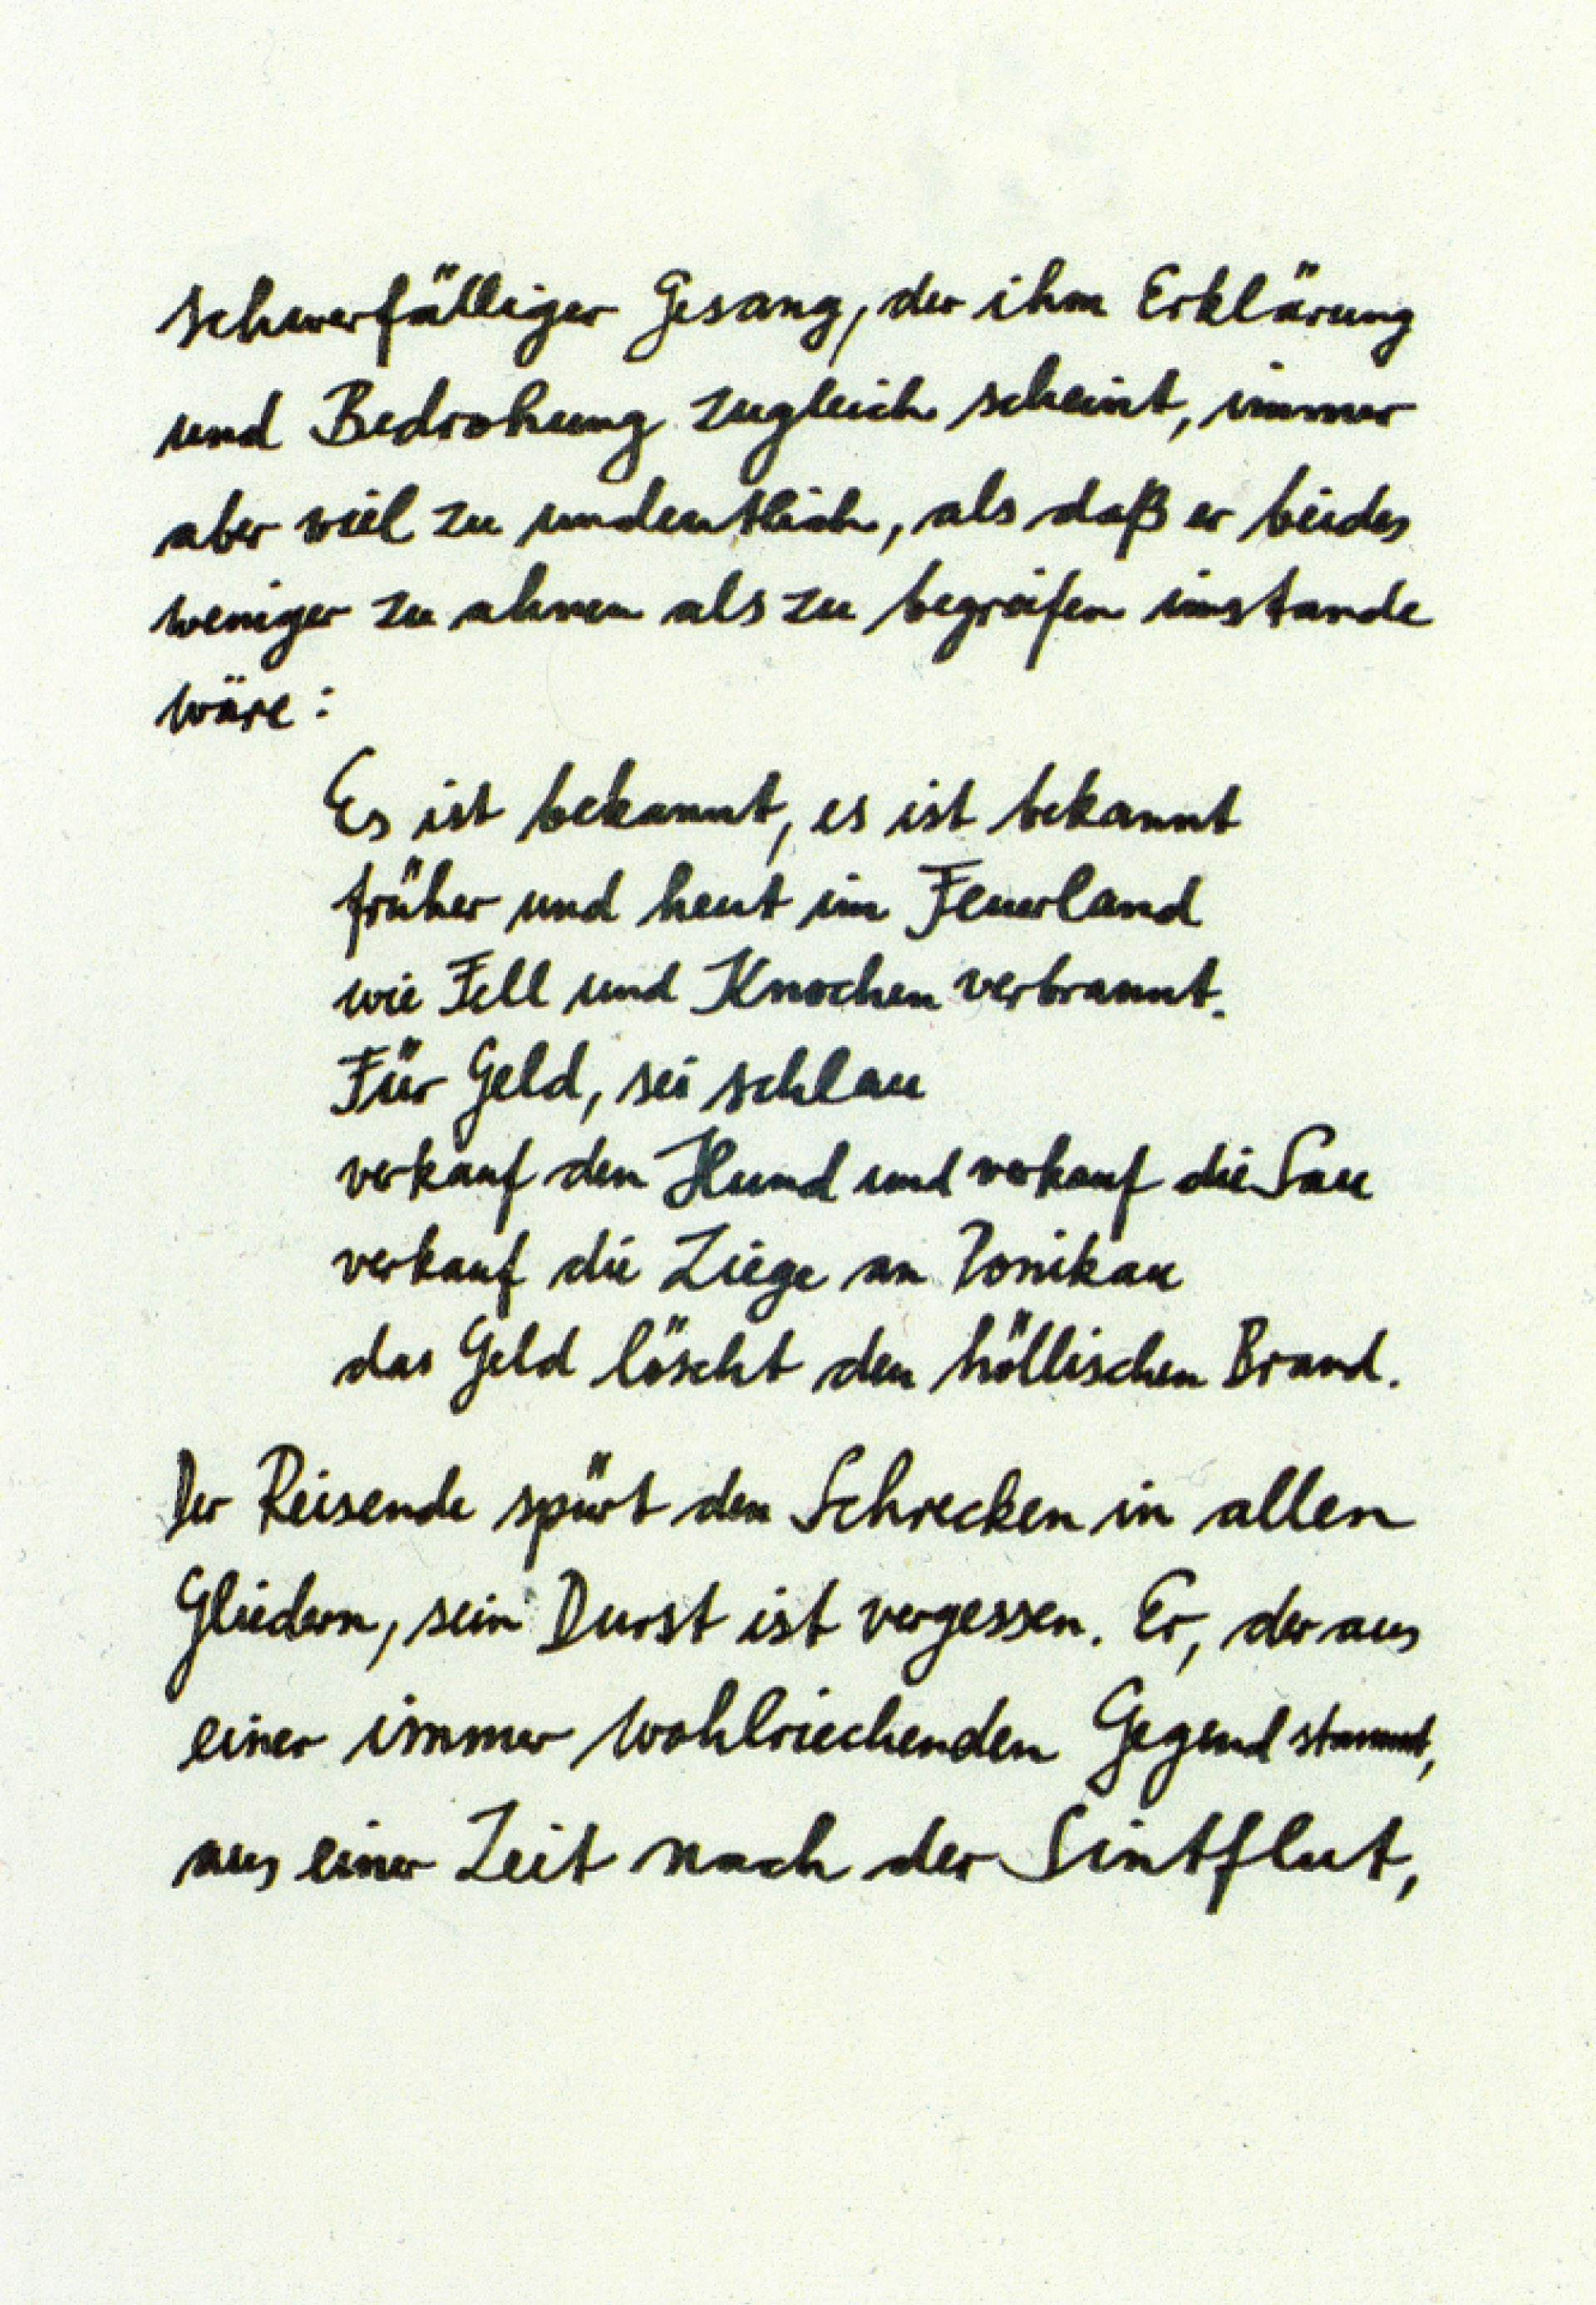 schwerfälliger Gesang, der ihm Erklärung
und Bedrohung zugleich scheint, immer
aber viel zu undeutlich, als daß er beides
weniger zu ahnen als zu begreifen imstande
wäre:
Es ist bekannt, es ist bekannt
früher und heut im Feuerland
wie Fell und Knochen verbrannt.
Für Geld, sei schlau
verkauf den Hund und verkauf die Sau
verkauf die Ziege an Ponikau
das Geld löscht den höllischen Brand.
Der Reisende spürt den Schrecken in allen
Gliedern, sein Durst ist vergessen. Er, der aus
einer immer wohlriechenden Gegend stammt,
aus einer Zeit nach der Sintflut,